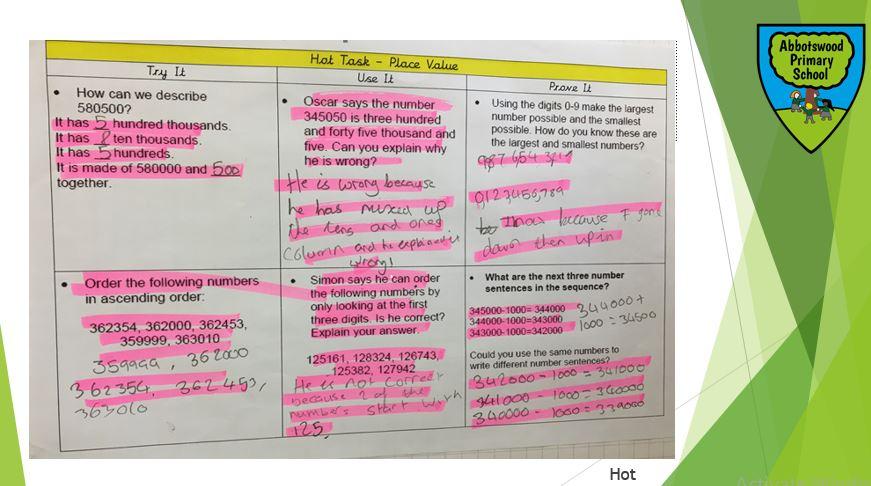 Hot Task – Place Value
Try It
Use It
Prove It
How can we describe
580500?
It has 5 hundred thousands.
It has 8 ten thousands.
It has 5 hundreds.
It is made of 580000 and 500
together.
Oscar says the number
345050 is three hundred
and forty five thousand and
five. Can you explain why
he is wrong?
He is wrong because
he has mixed up
the tens and ones
column and he explained it
wrong!
Using the digits 0-9 make the largest
number possible and the smallest
possible. How do you know these are
the largest and smallest numbers?
0123456789
because I gone
down then up in
Order the following numbers
in ascending order:
362354, 362000, 362453,
359999, 363010
359999, 362000
362354, 362453,
363010
Simon says he can order
the following numbers by
only looking at the first
three digits. Is he correct?
Explain your answer.
125161, 128324, 126743,
125382, 127942
He is not correct
because 2 of the
numbers start with
125.
What are the next three number
sentences in the sequence?
345000-1000= 344000
344000-1000=343000
343000-1000=342000
344000+
1000 = 34500
Could you use the same numbers to
write different number sentences?
342000 - 1000 = 341000
341000 - 1000 = 340000
340000 - 1000 = 339000
Abbotswood
Primary
School
Hot